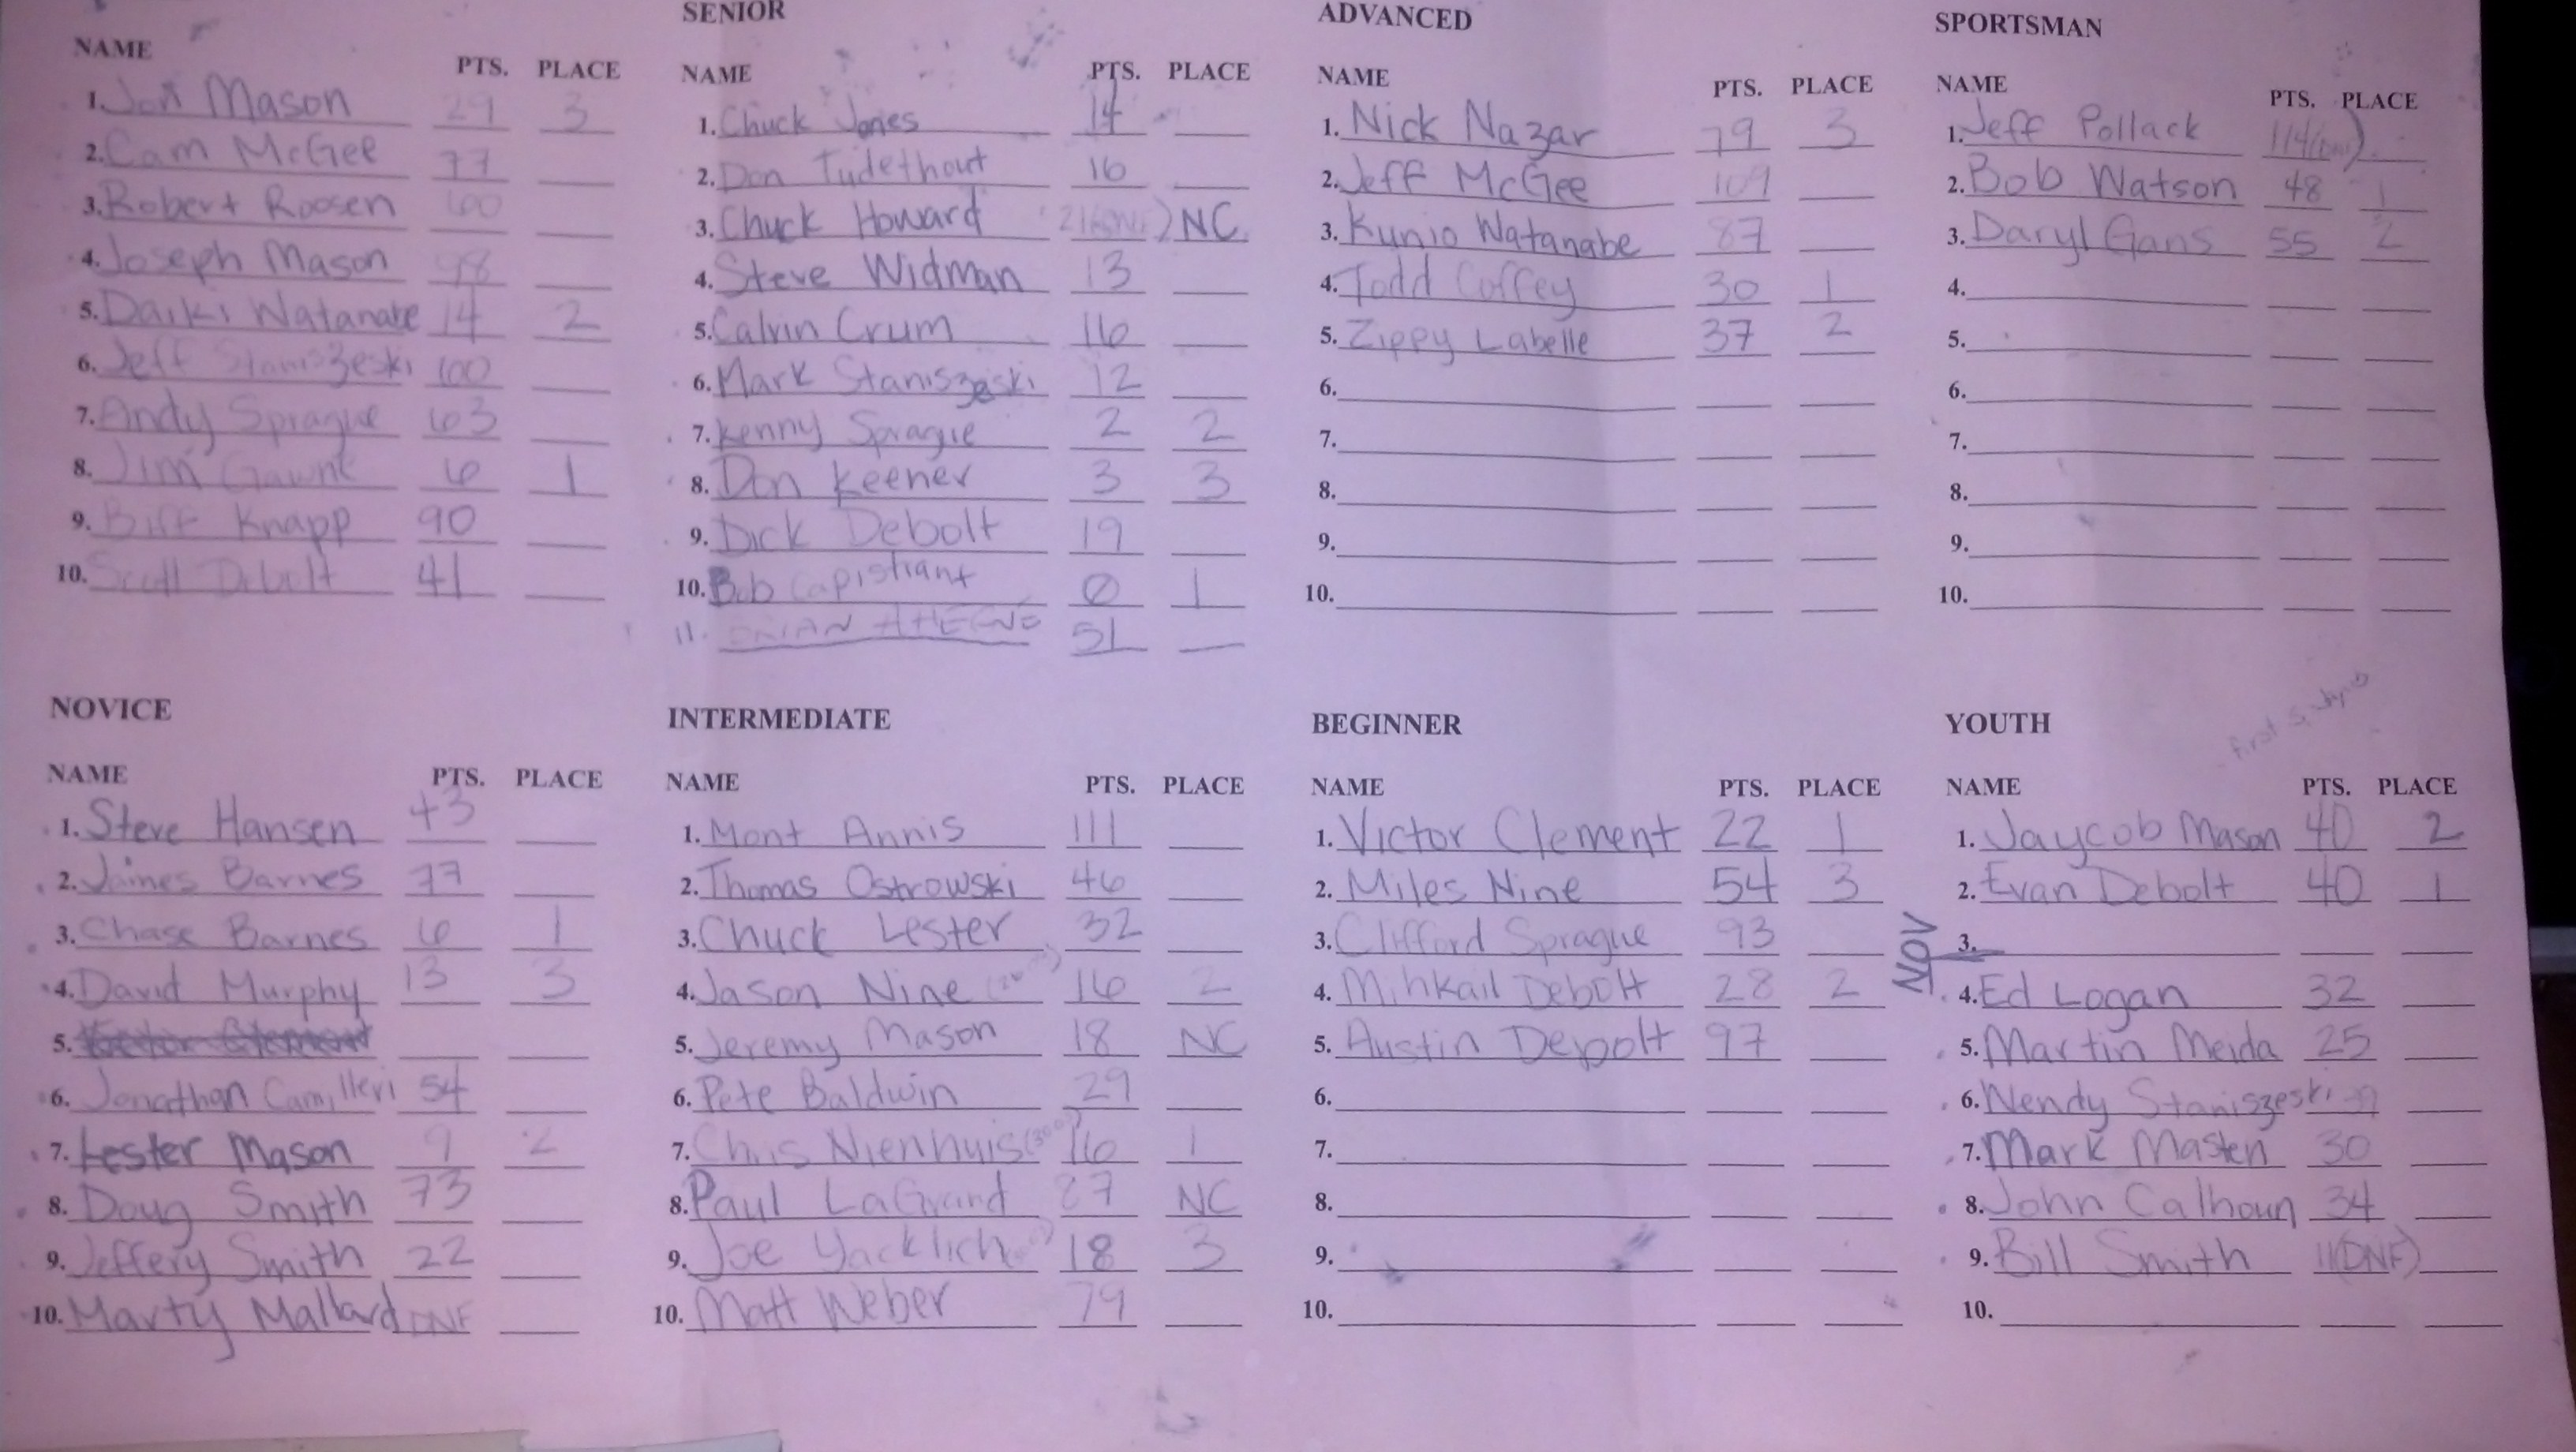 NAME PTS. PLACE
1. Jon Mason 29 3
2. Cam McGee 77
3. Robert Roosen 60
4. Joseph Mason 98
5. Daiki Watanabe 14 2
6. Jeff Staniszeski 100
7. Andy Sprague 63
8. Jim Gawne 6 1
9. Biff Knapp 90
10. Scott Debolt 41
SENIOR
NAME PTS. PLACE
1. Chuck Jones 14
2. Don Tudethout 16
3. Chuck Howard 21(DNF) NC
4. Steve Widman 13
5. Calvin Crum 16
6. Mark Staniszeski 12
7. Kenny Sprague 2 2
8. Don Keener 3 3
9. Dick Debolt 19
10. Bob Capistrant 0 1
11. 51
ADVANCED
NAME PTS. PLACE
1. Nick Nazar 79 3
2. Jeff McGee 109
3. Kunio Watanabe 87
4. Todd Coffey 30 1
5. Zippy Labelle 37 2
6.
7.
8.
9.
10.
SPORTSMAN
NAME PTS. PLACE
1. Jeff Pollack 114(DNF)
2. Bob Watson 48 1
3. Daryl Gans 55 2
4.
5.
6.
7.
8.
9.
10.
NOVICE
NAME PTS. PLACE
1. Steve Hansen 43
2. James Barnes 77
3. Chase Barnes 6 1
4. David Murphy 13 3
5.
6. Jonathan Camilleri 54
7. Lester Mason 9 2
8. Doug Smith 73
9. Jeffery Smith 22
10. Marty Mallard DNF
INTERMEDIATE
NAME PTS. PLACE
1. Mont Annis 111
2. Thomas Ostrowski 46
3. Chuck Lester 32
4. Jason Nine 16 2
5. Jeremy Mason 18 NC
6. Pete Baldwin 29
7. Chris Nienhuis 16 1
8. Paul LaGrand 87 NC
9. Joe Yacklich 18 3
10. Matt Weber 79
BEGINNER
NAME PTS. PLACE
1. Victor Clement 22 1
2. Miles Nine 54 3
3. Clifford Sprague 93
4. Mihkail Debolt 28 2
5. Austin Debolt 97
6.
7.
8.
9.
10.
YOUTH
NAME PTS. PLACE
1. Jaycob Mason 40 2
2. Evan Debolt 40 1
3.
NOV
4. Ed Logan 32
5. Martin Meida 25
6. Wendy Staniszeski
7. Mark Masten 30
8. John Calhoun 34
9. Bill Smith 11(DNF)
10.